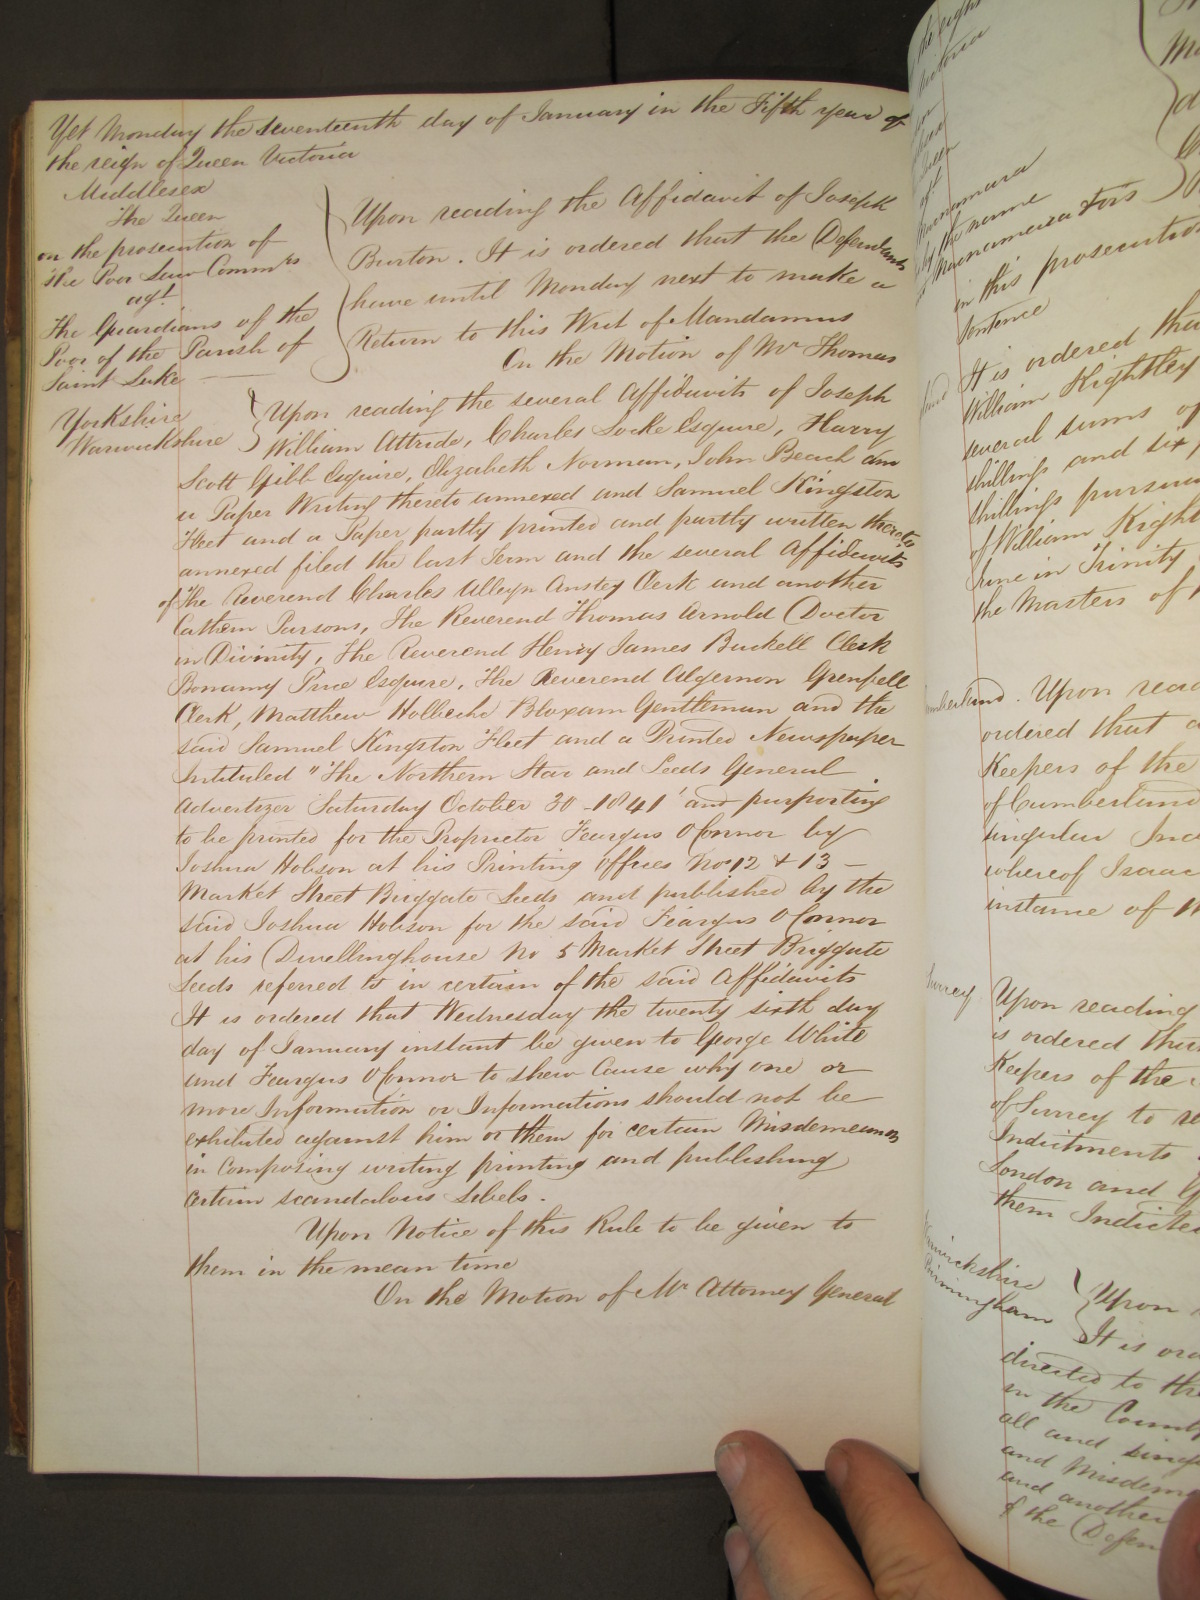 Yet Monday the Seventeenth day of January in the Fifth year of
the reign of Queen Victoria
Middlesex
The Queen
on the prosecution of
The Poor Law Comm^rs
ag^t
The Guardians of the
Poor of the Parish of
Saint Luke
Upon reading the Affidavit of Joseph
Burton. It is ordered that the Defendants
have until Monday next to make a
Return to this Writ of Mandamus
On the Motion of M^r Thomas
Yorkshire
Warwickshire
Upon reading the several Affidavits of Joseph
William Attride, Charles Locke Esquire, Harry
Scott Gibb Esquire, Elizabeth Norman, John Beach and
a Paper Writing thereto annexed and Samuel Kingston
Fleet and a Paper partly printed and partly written thereto
annexed filed the last Term and the several Affidavits
of The Reverend Charles Alleyn Anstey Clerk and another
Parsons, The Reverend Thomas Arnold Doctor
in Divinity, The Reverend Henry James Buckell Clerk
Bonamy Price Esquire, The Reverend Algernon Grenfell
Clerk, Matthew Holbeche Bloxam Gentleman and the
said Samuel Kingston Fleet and a Printed Newspaper
Intituled "The Northern Star and Leeds General
Advertizer Saturday October 30 1841" and purporting
to be printed for the Proprietor Feargus O'Connor by
Joshua Hobson at his Printing Offices Nos 12 & 13
Market Street Briggate Leeds and published by the
said Joshua Hobson for the said Feargus O'Connor
at his Dwellinghouse No 5 Market Street Briggate
Leeds referred to in certain of the said Affidavits
It is ordered that Wednesday the twenty sixth day
day of January instant be given to George White
and Feargus O'Connor to shew Cause why one or
more Information or Informations should not be
exhibited against him or them for certain Misdemeanors
in composing writing printing and publishing
certain scandalous Libels.
Upon Notice of this Rule to be given to
them in the mean time
On the Motion of M^r Attorney General
the name
in this prosecution
Sentence
It is ordered that
William Rightley
several sums of
shillings and six
shillings pursuan
of William Right
June in Trinity
the Masters of
Upon read
ordered that
Keepers of the
of Cumberland
singular
whereof Isaac
instance of
Surrey
Upon reading
is ordered that
Keepers of the
of Surrey to
Indictments
London and
them Indicted
Birmingham
Upon
It is
directed to the
in the County
all and
and Misdem
and another
of the Defen